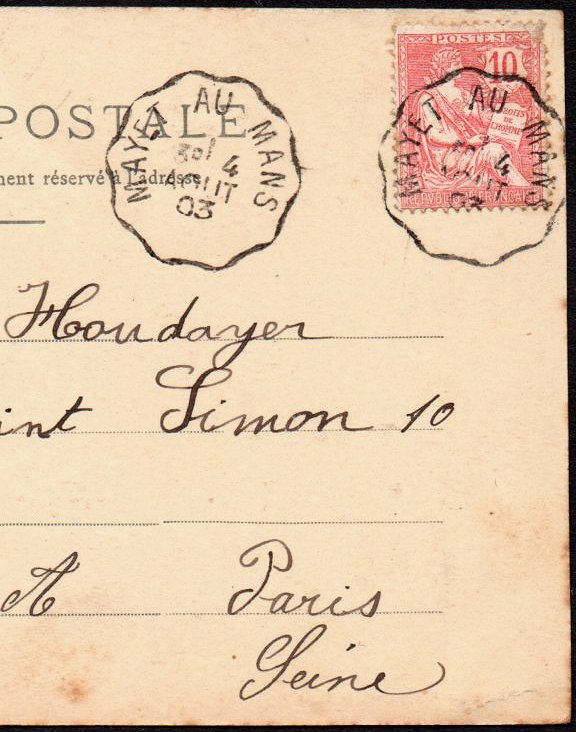 POSTALE
MAYET AU MANS
4
AOUT
03
POSTES
10
DROITS
DE
L'HOMME
REPUBLIQUE FRANÇAISE
MAYET AU MANS
4
AOUT
03
ment réservé à l'adresse
Houdayer
int Simon 10
A Paris
Seine